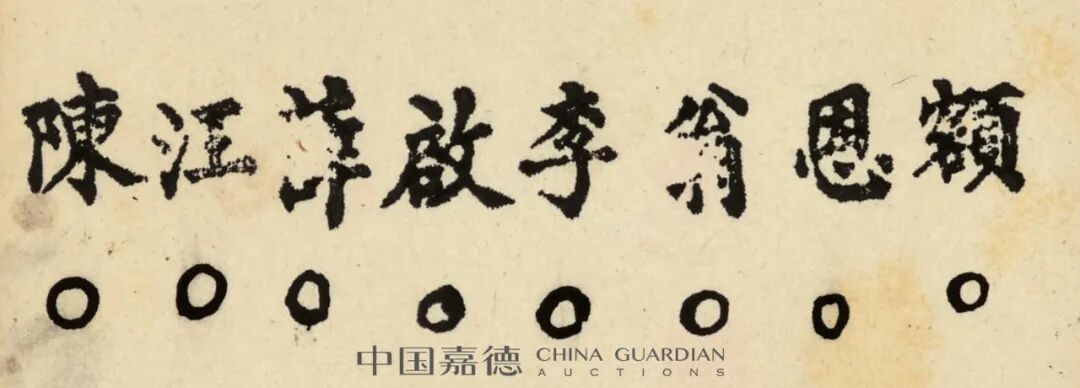 額恩翁李啟薛汪陳
中国嘉德 CHINA GUARDIAN AUCTIONS